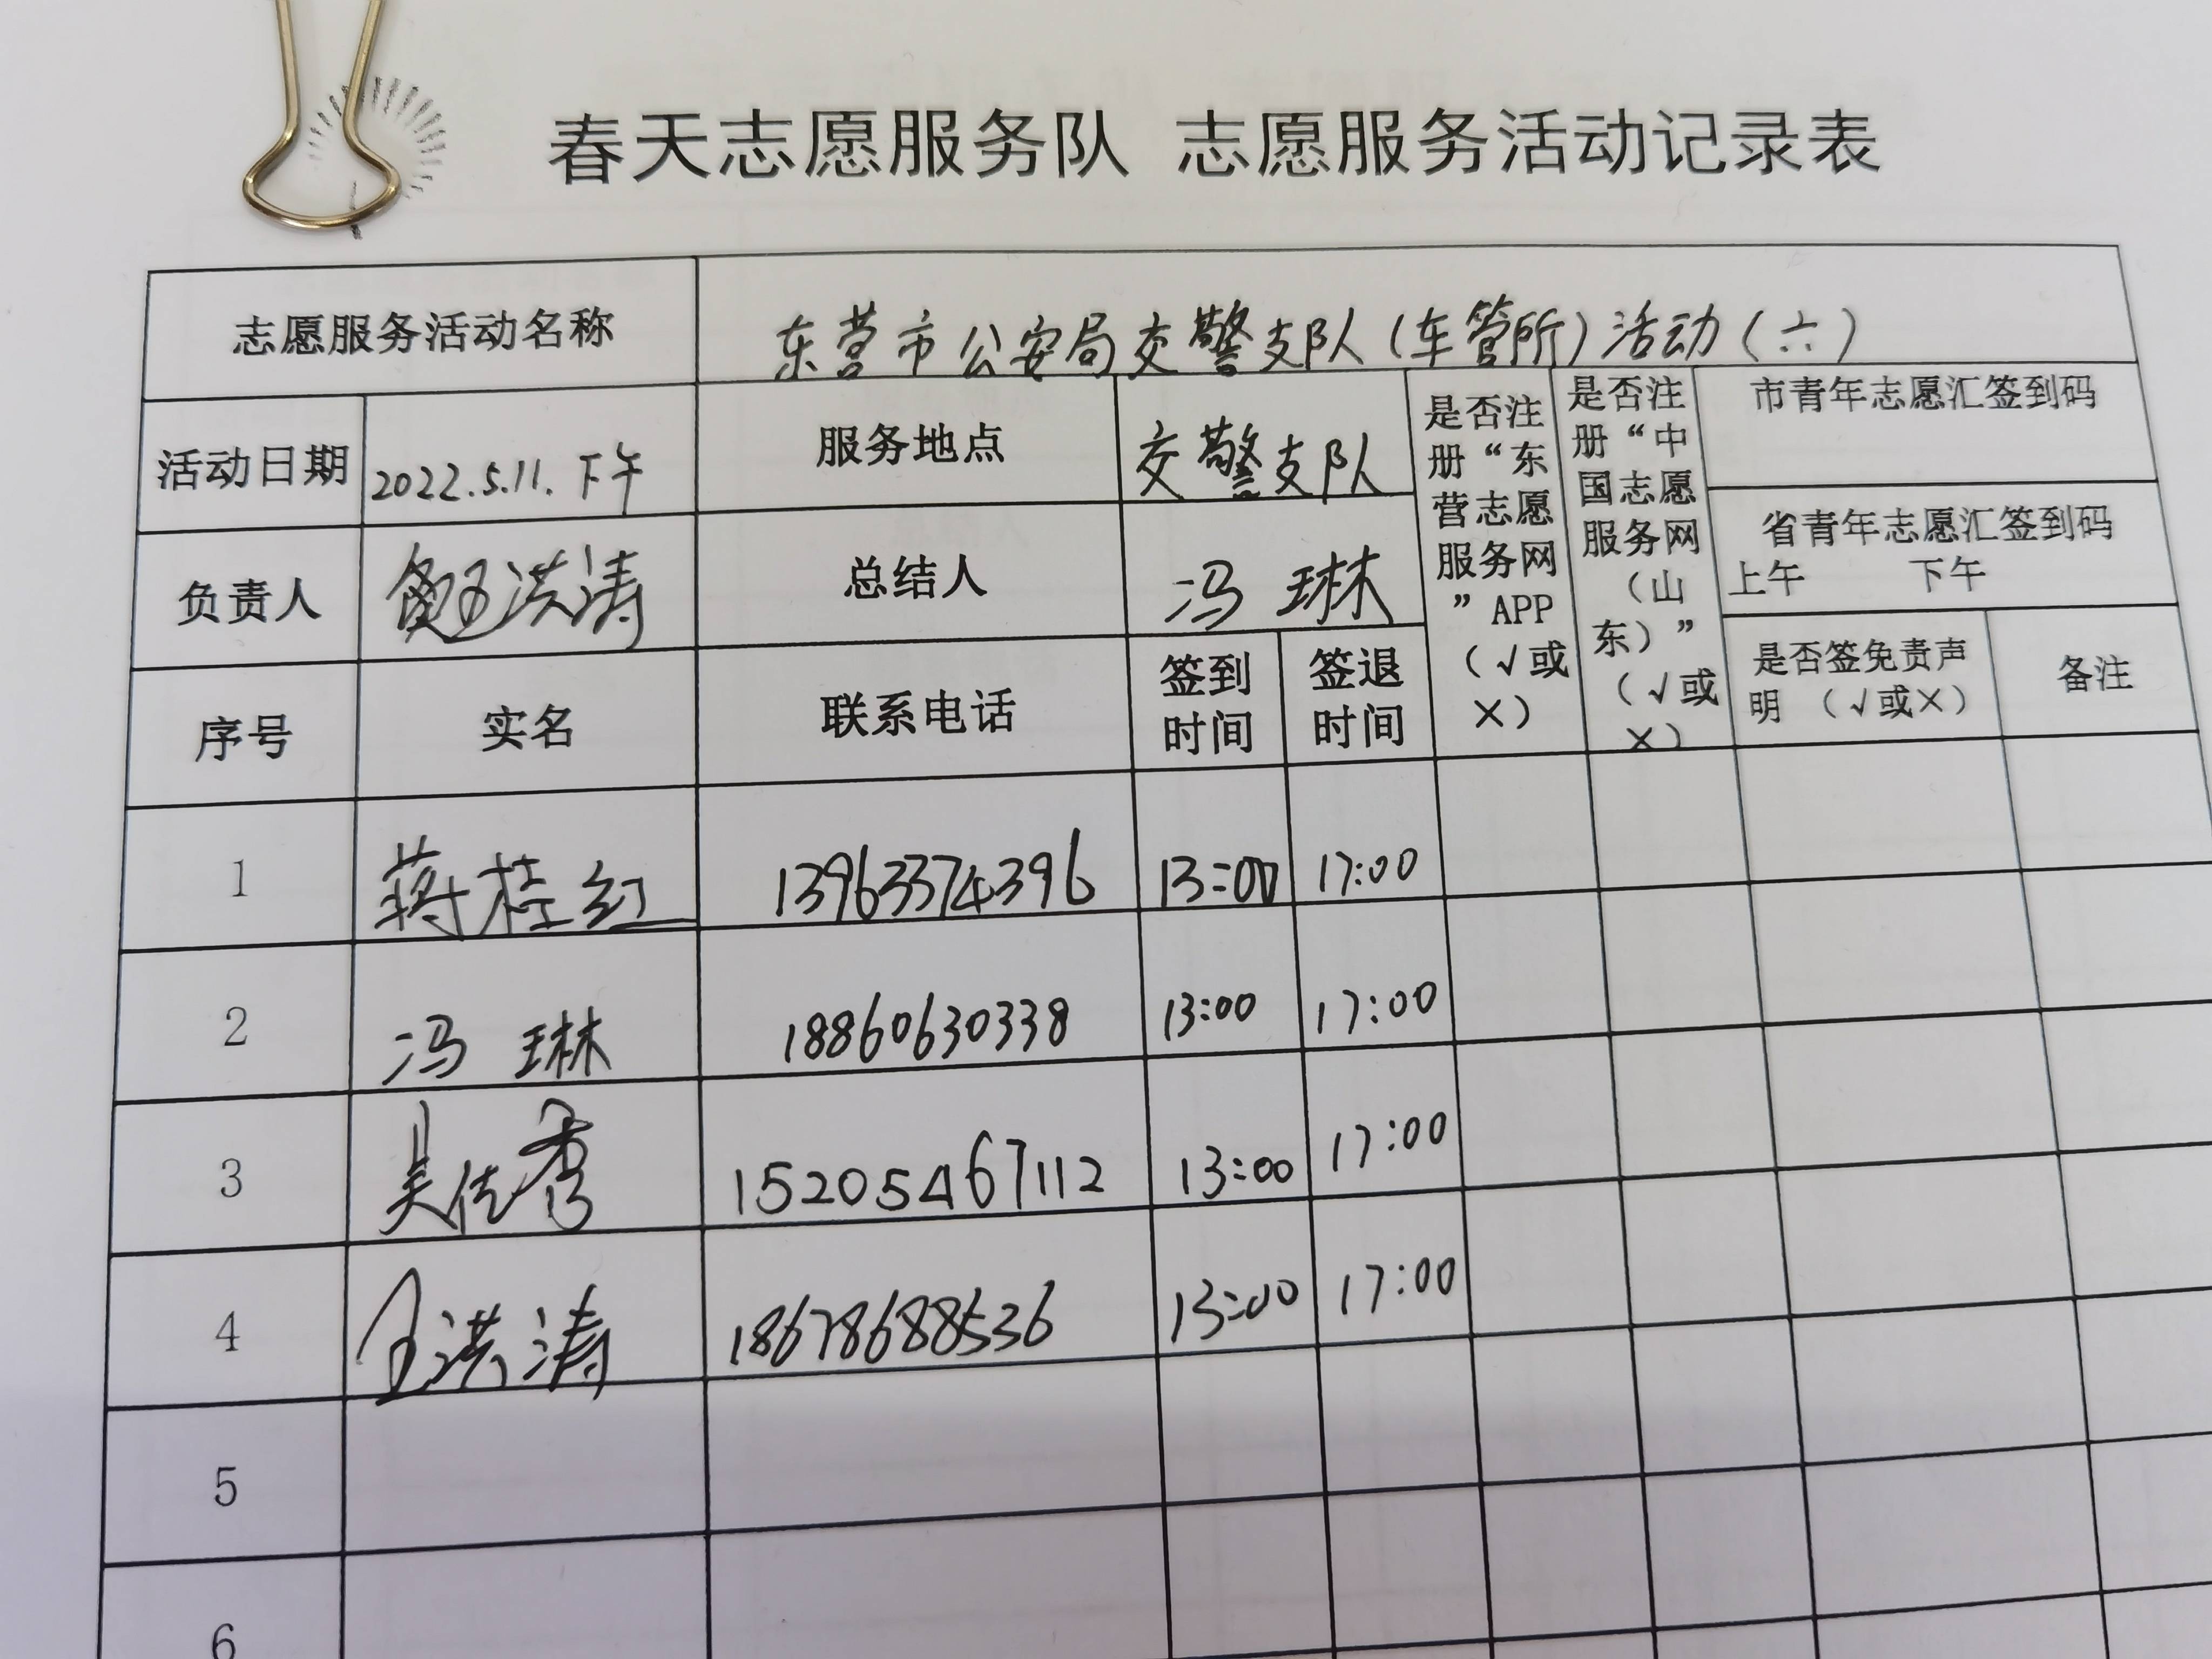 春天志愿服务队 志愿服务活动记录表
志愿服务活动名称 东营市公安局交警支队(车管所)活动(六)
活动日期 2022.5.11.下午 服务地点 交警支队
是否注册“东营志愿服务网”APP（√或×）
是否注册“中国志愿服务网（山东）”（√或×）
市青年志愿汇签到码
省青年志愿汇签到码
上午 下午
负责人 洪涛 总结人 冯琳
序号 实名 联系电话 签到时间 签退时间 是否签免责声明 （√或×） 备注
1 蒋桂红 13963374396 13:00 17:00
2 冯琳 18860630338 13:00 17:00
3 吴佐秀 15205467112 13:00 17:00
4 洪涛 18678688536 13:00 17:00
5
6